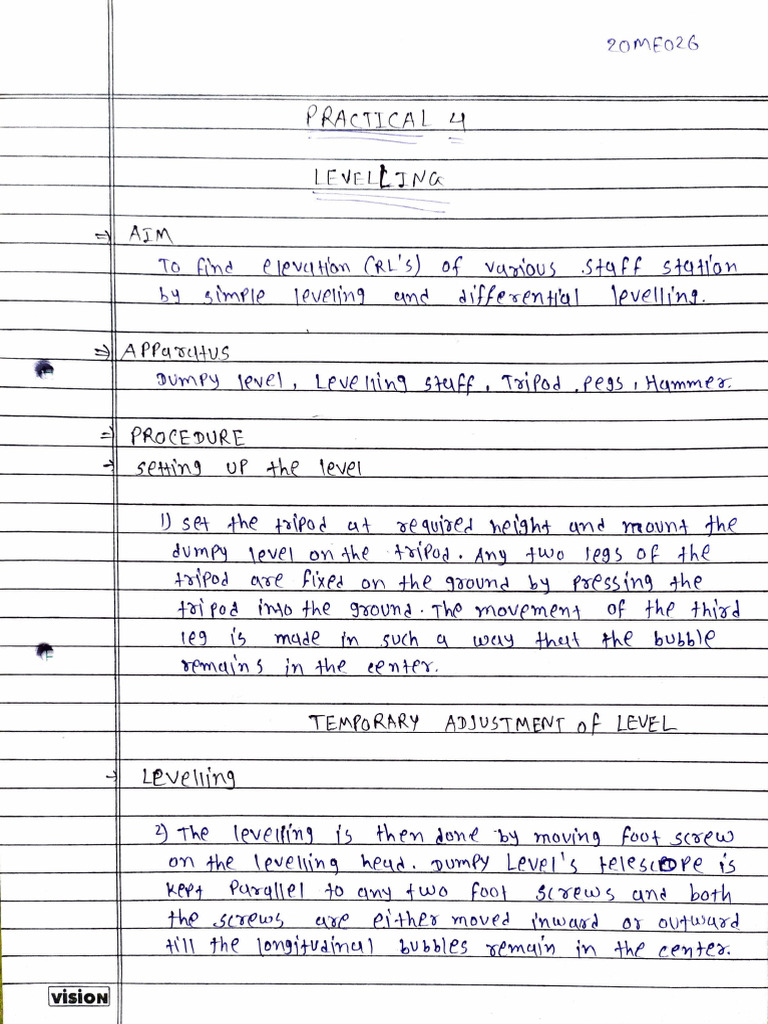 20ME026
PRACTICAL 4
LEVELLING
⇒ AIM
To find elevation (RL's) of various staff station
by simple leveling and differential levelling.
⇒ Apparatus
Dumpy level, Levelling staff, Tripod, pegs, Hammer.
⇒ PROCEDURE
→ setting up the level
1) set the tripod at required height and mount the
dumpy level on the tripod. Any two legs of the
tripod are fixed on the ground by pressing the
tripod into the ground. The movement of the third
leg is made in such a way that the bubble
remains in the center.
TEMPORARY ADJUSTMENT of LEVEL
→ Levelling
2) The levelling is then done by moving foot screw
on the levelling head. Dumpy Level's telescope is
kept parallel to any two foot screws and both
the screws are either moved inward or outward
till the longitudinal bubbles remain in the center.
vision